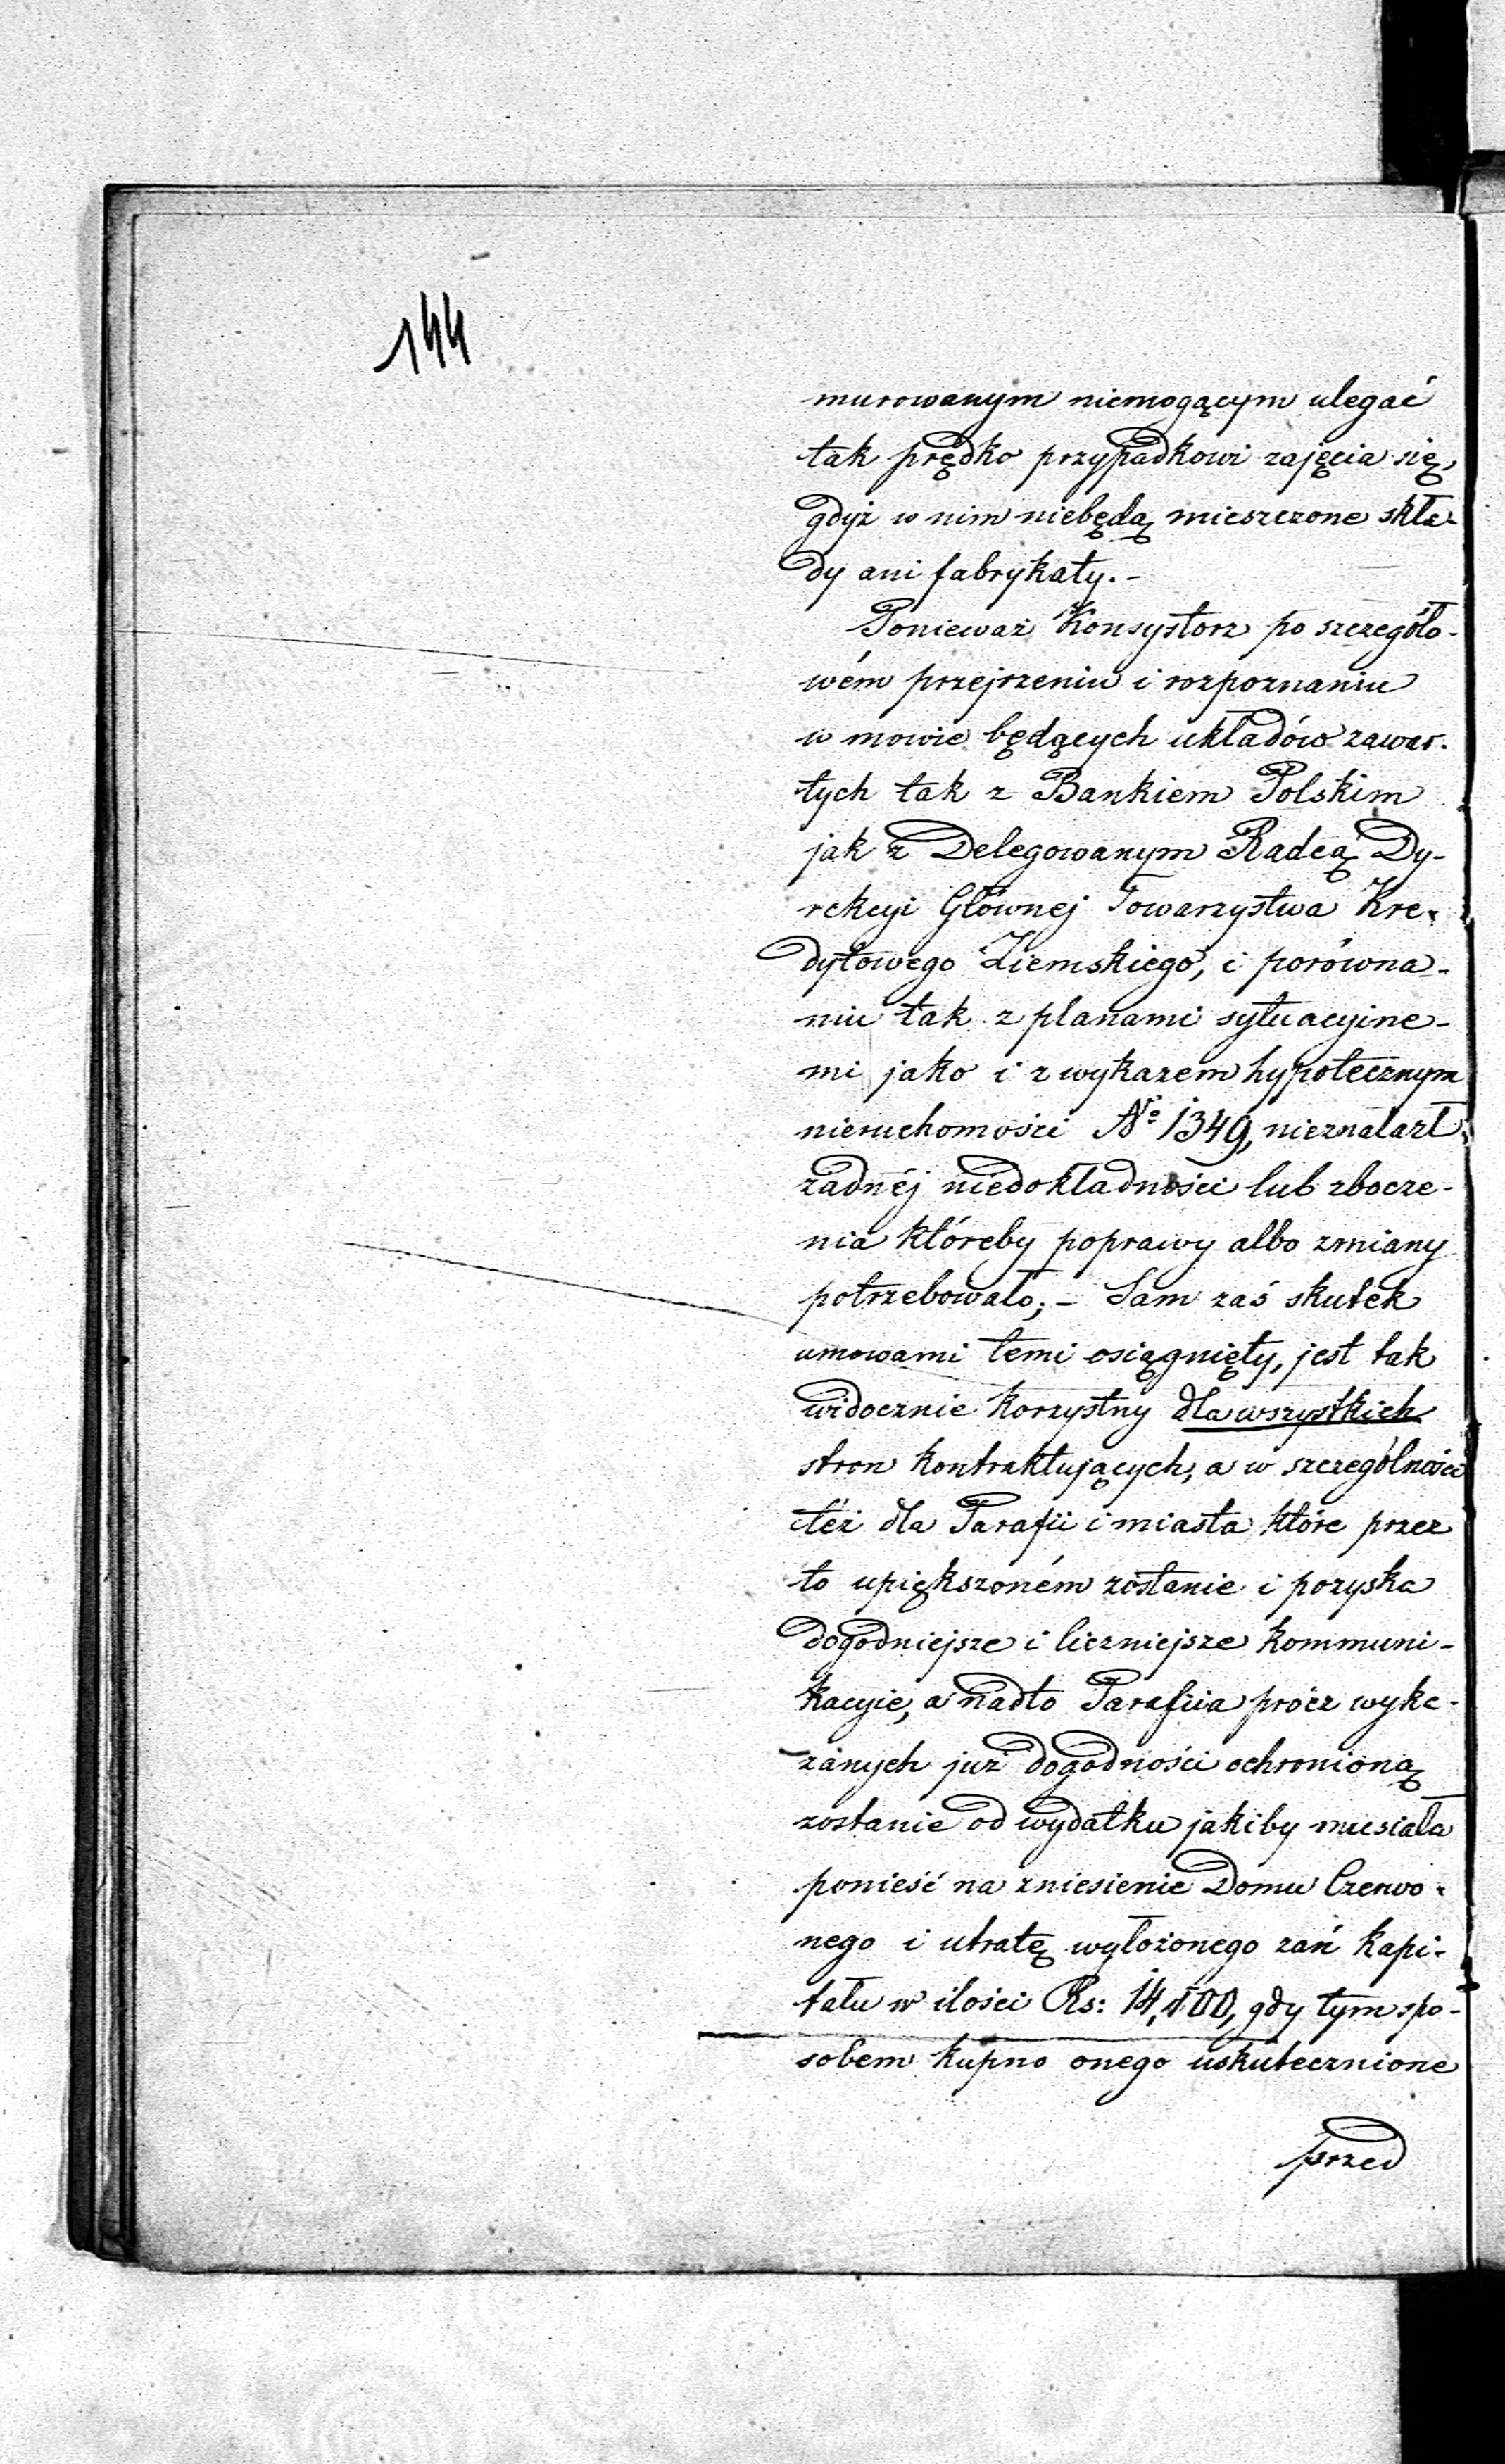 144
murowanym niemogącym ulegać
tak prędko przypadkowi zajęcia się,
gdyż w nim niebędą mieszczone skła-
dy ani fabrykaty.-
Ponieważ Konsystorz po szczegóło-
wém przejrzeniu i rozpoznaniu
w mowie będących układów zawar-
tych tak z Bankiem Polskim
jak z Delegowanym Radcą Dy-
rekcyi Głównej Towarzystwa Kre-
dytowego Ziemskiego, i porówna-
niu tak z planami sytuacyjne-
mi jako i z wykazem hypotecznym
nieruchomości Nº 1349, nieznalazł
żadnéj niedokładności lub zbocze-
nia któreby poprawy albo zmiany
potrzebowało; - Sam zaś skutek
umowami temi osiągnięty, jest tak
widocznie korzystny dla wszystkich
stron kontraktujących, a w szczególności
téż dla Parafii i miasta które przez
to upiększoném zostanie i pozyska
dogodniejsze i liczniejsze kommuni-
kacyie, a nadto Parafiia prócz wyka-
zanych już dogodności ochronioną
zostanie od wydatku jakiby musiała
ponieść na zniesienie Domu Czerwo-
nego i utratę wyłożonego zań kapi-
tału w ilości Rs: 14,100, gdy tym spo-
sobem kupno onego uskutecznione
przed